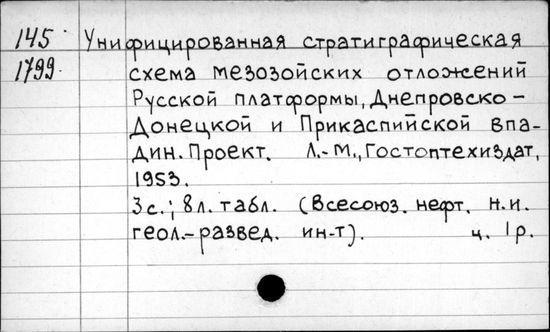 145 Унифицированная стратиграфическая
1799. схема мезозойских отложений
Русской платформы, Днепровско-
Донецкой и Прикаспийской впа-
дин. Проект. Л.-М., Гостоптехиздат,
1953.
3с.; 8л. табл. (Всесоюз. нефт. н.и.
геол.-развед. ин-т). ц. 1р.